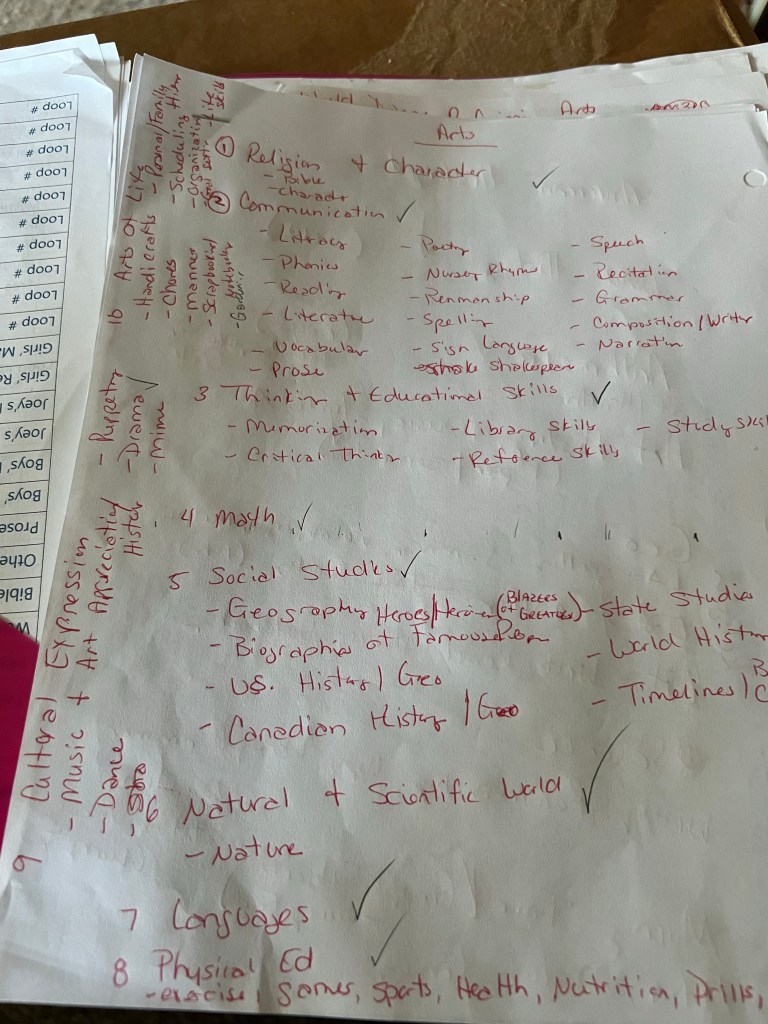 Arts
① Religion + Character ✓
- Bible
- Character
② Communication ✓
- Literacy - Poetry - Speech
- Phonics - Nursery Rhyms - Recitation
- Reading - Penmanship - Grammar
- Literatre - Spelling - Composition / Writer
- Vocabular - Sign Language - Narratin
- Prose Shakespeare
3 Thinkin + Educational Skills ✓
- Memorization - Library skills - Study skil
- Critical Thinkr - Refernce skills
4 Math ✓
5 Social Studies ✓
- Geography Heroes/Heroines (BLAZERS of GREATNESS) - State Studies
- Biographies of Famous - World Histor
- US. History / Geo - Timelines /
- Canadian History / Geo
6 Natural + Scientific World ✓
- Nature
7 Languages ✓
8 Physical Ed ✓
- exercise, Games, Sports, Health, Nutrition, Drills,
9 Cultural Expression
- Music + Art Appreciation/
History
- Dance
- Puppetry
- Drama ✓
- Mime
10 Arts of Life
- Handicrafts
- Chores
- Manner
- Personal/Family
- Scheduling
- Organization
- Life Skills
Arts
Loop #
Loop #
Loop #
Loop #
Loop #
Loop #
Loop #
Loop #
Loop #
Loop #
Girls' M
Girls' Re
Joey's
Joey's
Boys'
Boys'
Prose
Othe
Bible
W